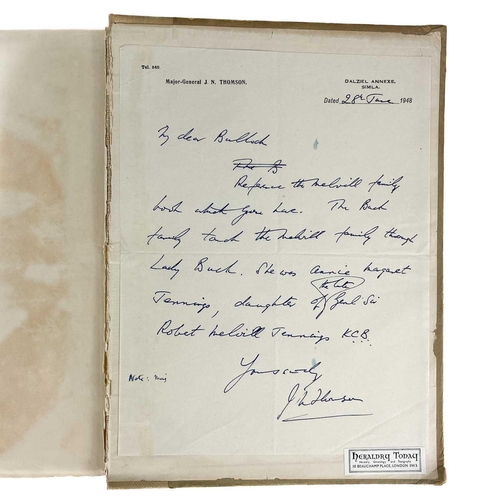 Tel. 840
Major-General J. N. THOMSON.
DALZIEL ANNEXE,
SIMLA.
Dated 28th June 1948
My dear Bulloch
The B
Reference the Melvill family
book which you have. The Buck
family touch the Melvill family through
Lady Buck. She was Annie Margaret
the late
Jennings, daughter of Genl Sir
Robert Melvill Jennings K.C.B.
Yours sincerely
J N Thomson
Note:
HERALDRY TODAY
Heraldry Genealogy and Topography
10 BEAUCHAMP PLACE, LONDON SW3